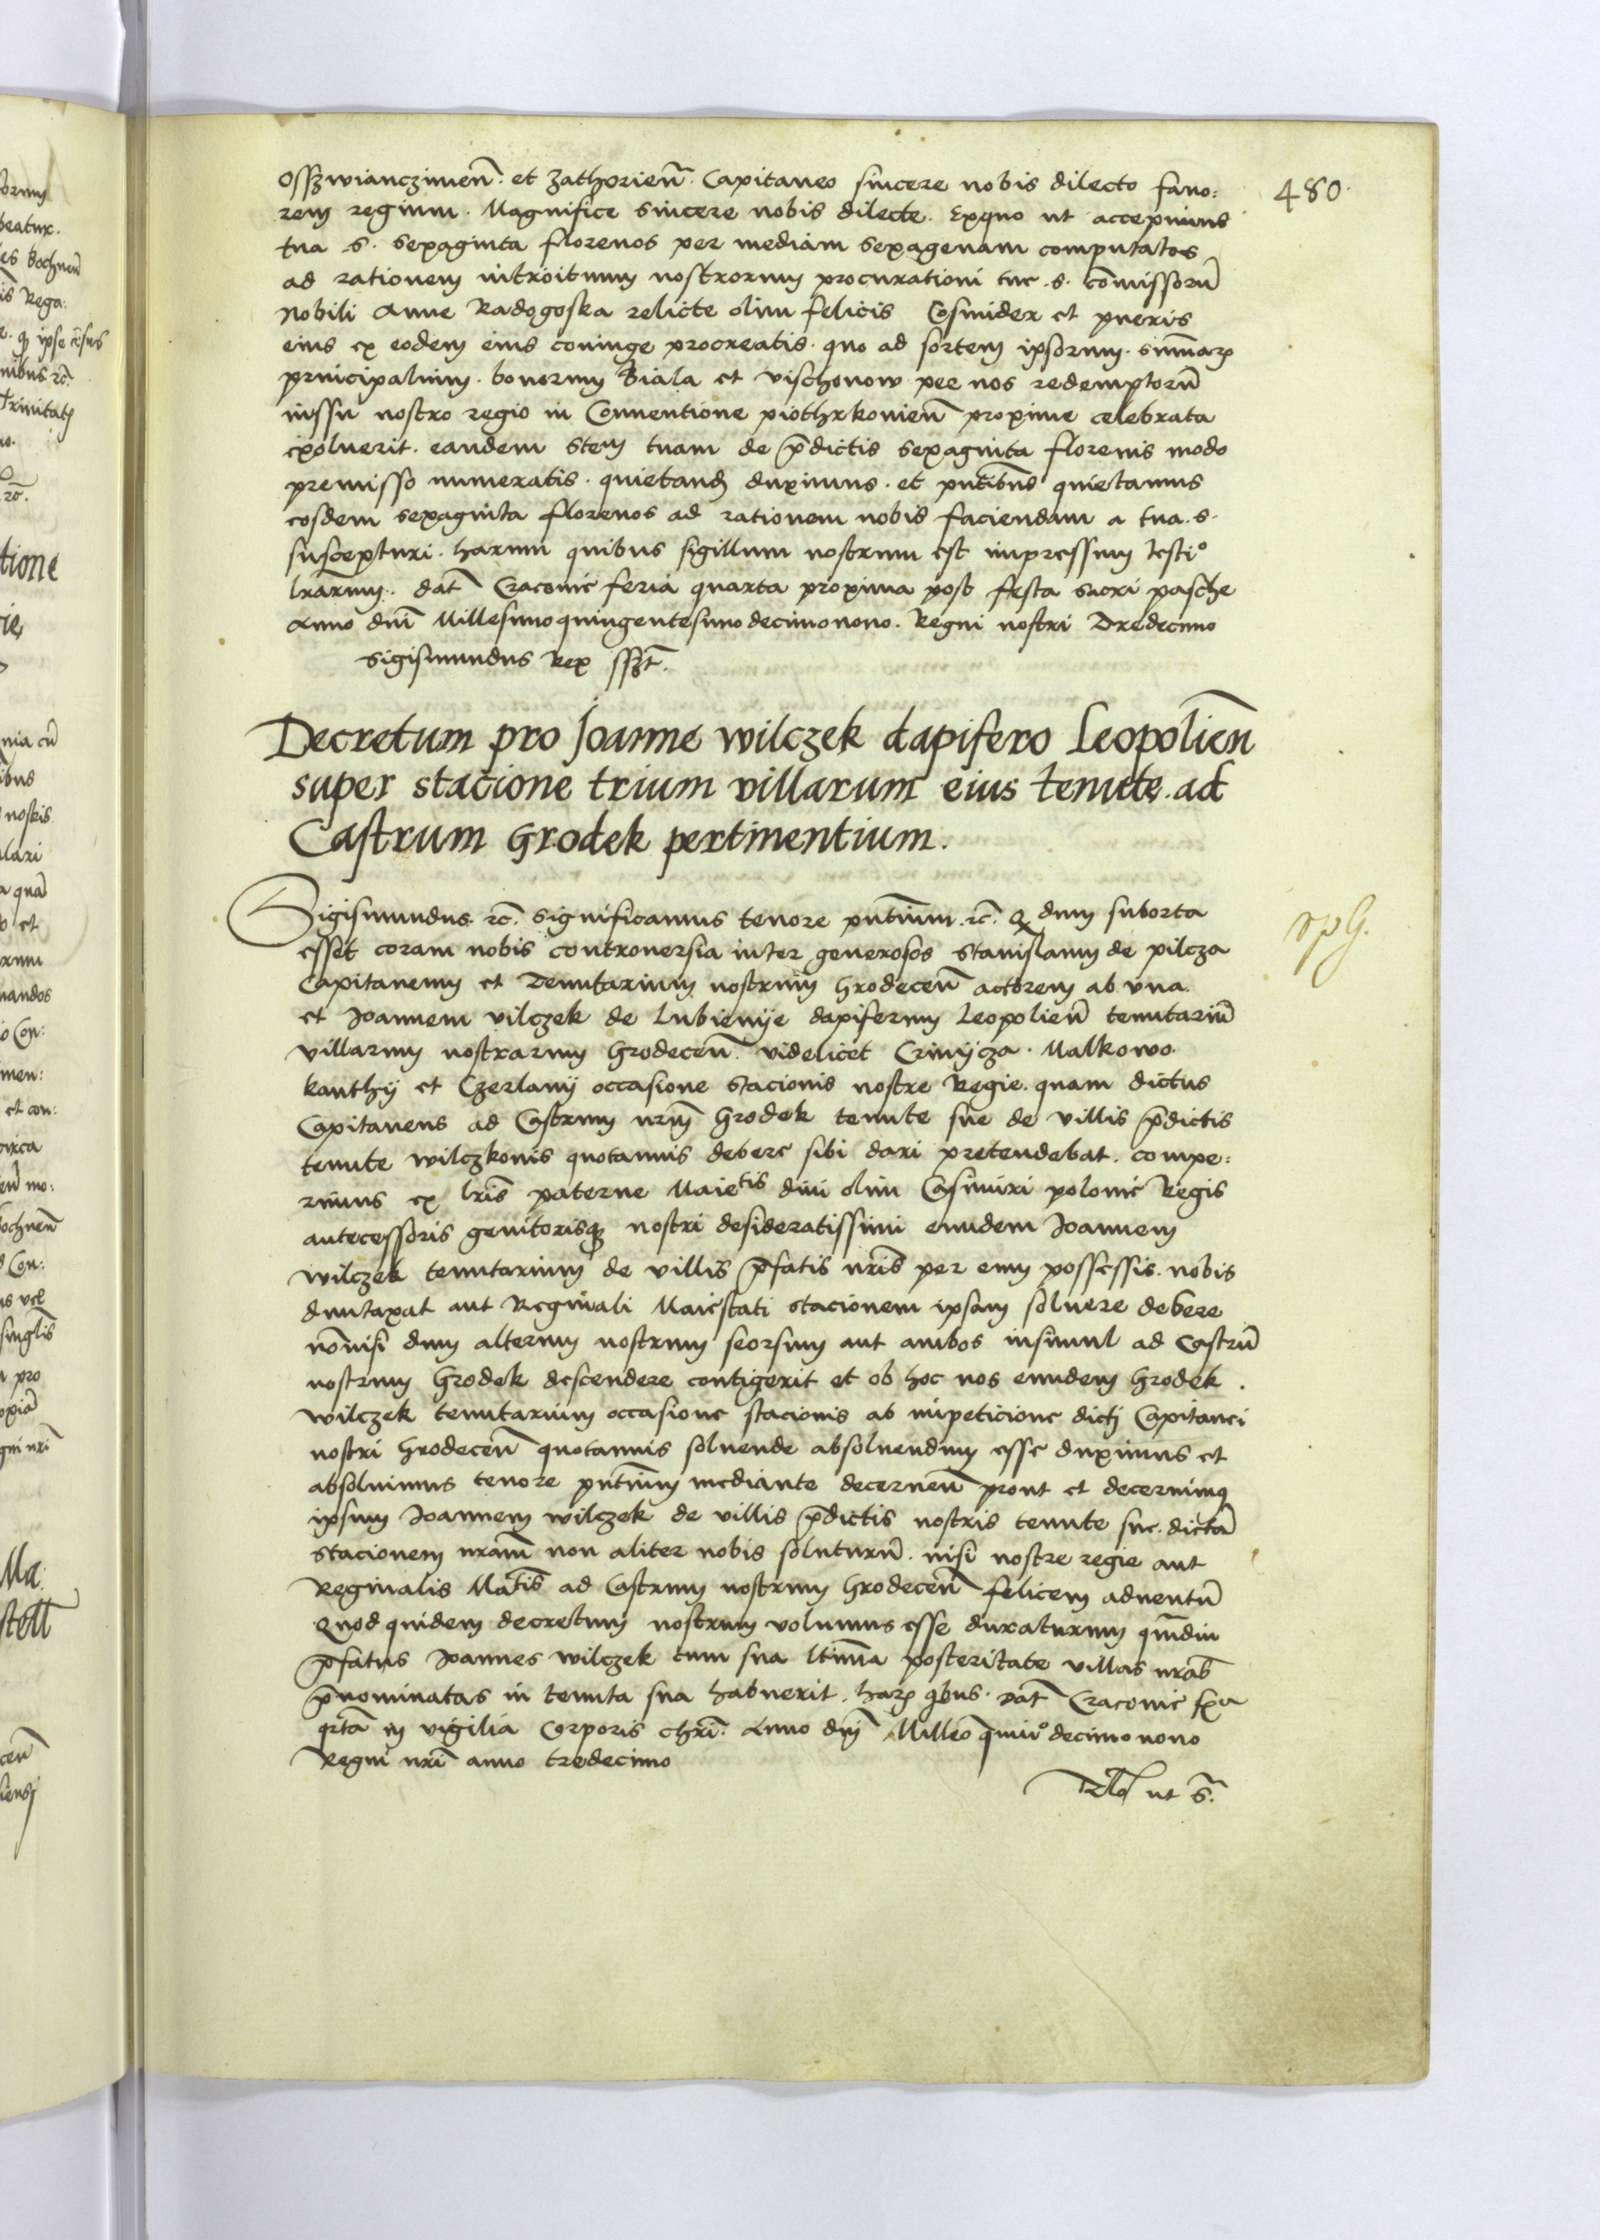 480.
Osszwiancʒimen̄. et Zathorien̄. Capitaneo sincere nobis dilecto favo:
rem regium. Magnifice sincere nobis dilecte. Exquo ut accepimus
tua s. sexaginta florenos per mediam sexagenam computatos
ad rationem introituum nostrorum procurationi tue .s. com̄issorū
Nobili Anne Radogoska relicte olim felicis Cosmider et pueris
eius ex eodem eius coniuge procreatis. quo ad sortem ipsorum. sum̄aꝝ
principalium. bonorum Biala et vischonow per nos redemptorū
iussu nostro regio in Conventione piothrkovien̄ proxime celebrata
exoluerit. eandem Stem tuam de p̄dictis sexaginta florenis modo
premisso numeratis. quietand duximus. et pn̄tibus quietamus
eosdem sexaginta florenos ad rationem nobis faciendam a tua. s.
suscepturi. harum quibus sigillum nostrum est impressum testio
lr̄arum. dat̄ Cracovie feria quarta proxima post festa sacri pasche
Anno dn̄i Millesimoquingentesimodecimonono. Regni nostri Tredecimo
Sigismundus Rex sszt̄.
Decretum pro Joanne wilczek dapifero Leopolien̄
super stacione trium villarum eius tenute. ad
Castrum Grodek pertinentium.
Sigismundus. rc̄. significamus tenore pn̄tium. rc̄. Q dum suborta
esset coram nobis controversia inter generosos Stanislaum de pilcza
Capitaneum et Tenutarium nostrum hrodecen̄ actorem ab una.
et Joannem vilczek de Lubienije dapiferum Leopolien̄ tenutariū
villarum nostrarum hrodecen̄. videlicet Czinijcza. Malkowo.
kanthij et Czerlanij occasione stacionis nostre Regie. quam dictus
Capitaneus ad Castrum nr̄um Grodek tenute sue de villis p̄dictis
tenute wilczkonis quotannis debere sibi dari pretendebat. compe:
rimus ex lr̄is paterne Maietis divi olim Casimiri polonie Regis
antecessoris genitorisqꝫ nostri desideratissimi eundem Joannem
wilczek tenutarium de villis p̄fatis nr̄is per eum possessis. nobis
duntaxat aut Reginali Maiestati stacionem ipsam solvere debere
nōnisi dum alterum nostrum seorsum aut ambos insimul ad Castrū
nostrum Grodek descendere contigerit et ob hoc nos eundem Grodek.
wilczek tenutarium occasione stacionis ab impeticione dictj Capitanei
nostri hrodecen̄ quotannis solvende absolvendum esse duximus et
absolvimus tenore pn̄tium mediante decernen̄ prout et decernimꝯ
ipsum Joannem wilczek de villis p̄dictis nostris tenute sue. dictā
stacionem nr̄am non aliter nobis soluturū. nisi nostre regie aut
Reginalis Matis ad Castrum nostrum hrodecen̄ felicem adventū
Quod quidem decretum nostrum volumus esse duraturum qm̄diu
p̄fatus Joannes wilczek cum sua ltima posteritate villas nr̄as
p̄nominatas in tenuta sua habuerit. haꝝ qbus. Dat̄ Cracovie fxa
qrta in vigilia Corporis chri. Anno dn̄j Milleo qmiuo decimonono
Regni nr̄i anno tredecimo
Rlo ut s.